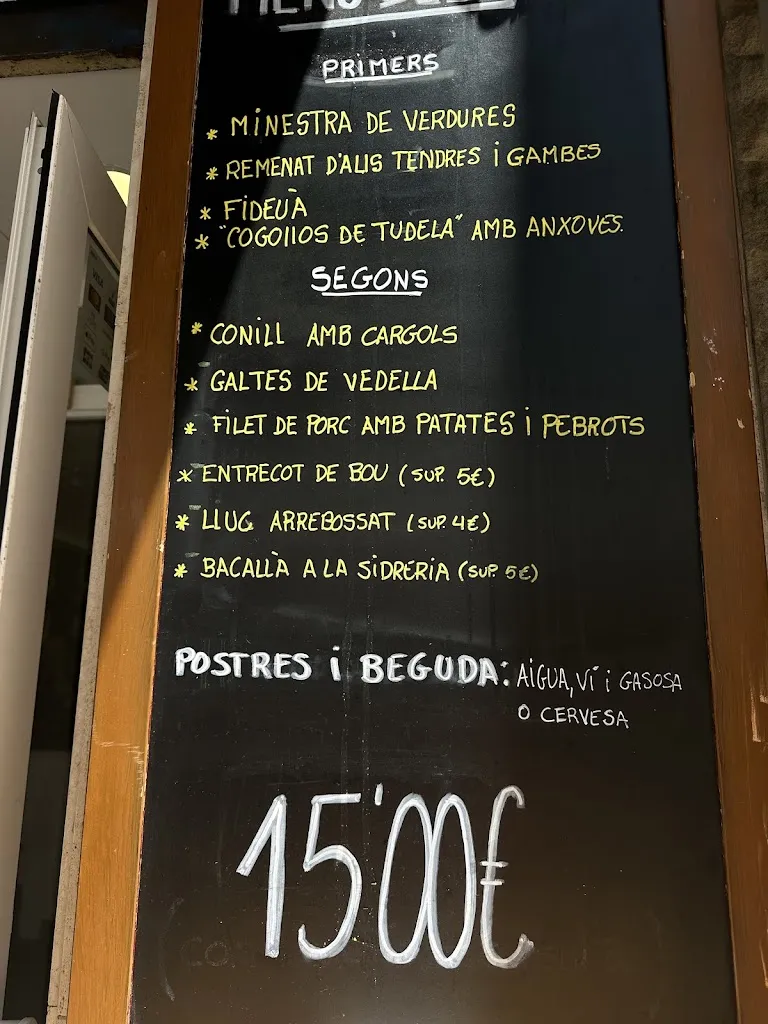 MENÚ
PRIMERS
* MINESTRA DE VERDURES
* REMENAT D'ALLS TENDRES i GAMBES
* FIDEUÀ
* "COGOLLOS DE TUDELA" AMB ANXOVES.
SEGONS
* CONILL AMB CARGOLS
* GALTES DE VEDELLA
* FILET DE PORC AMB PATATES i PEBROTS
* ENTRECOT DE BOU (SUP. 5€)
* LLUÇ ARREBOSSAT (SUP. 4€)
* BACALLÀ A LA SIDRERIA (SUP. 5€)
POSTRES i BEGUDA: AIGUA, Ví i GASOSA
O CERVESA
15'00€